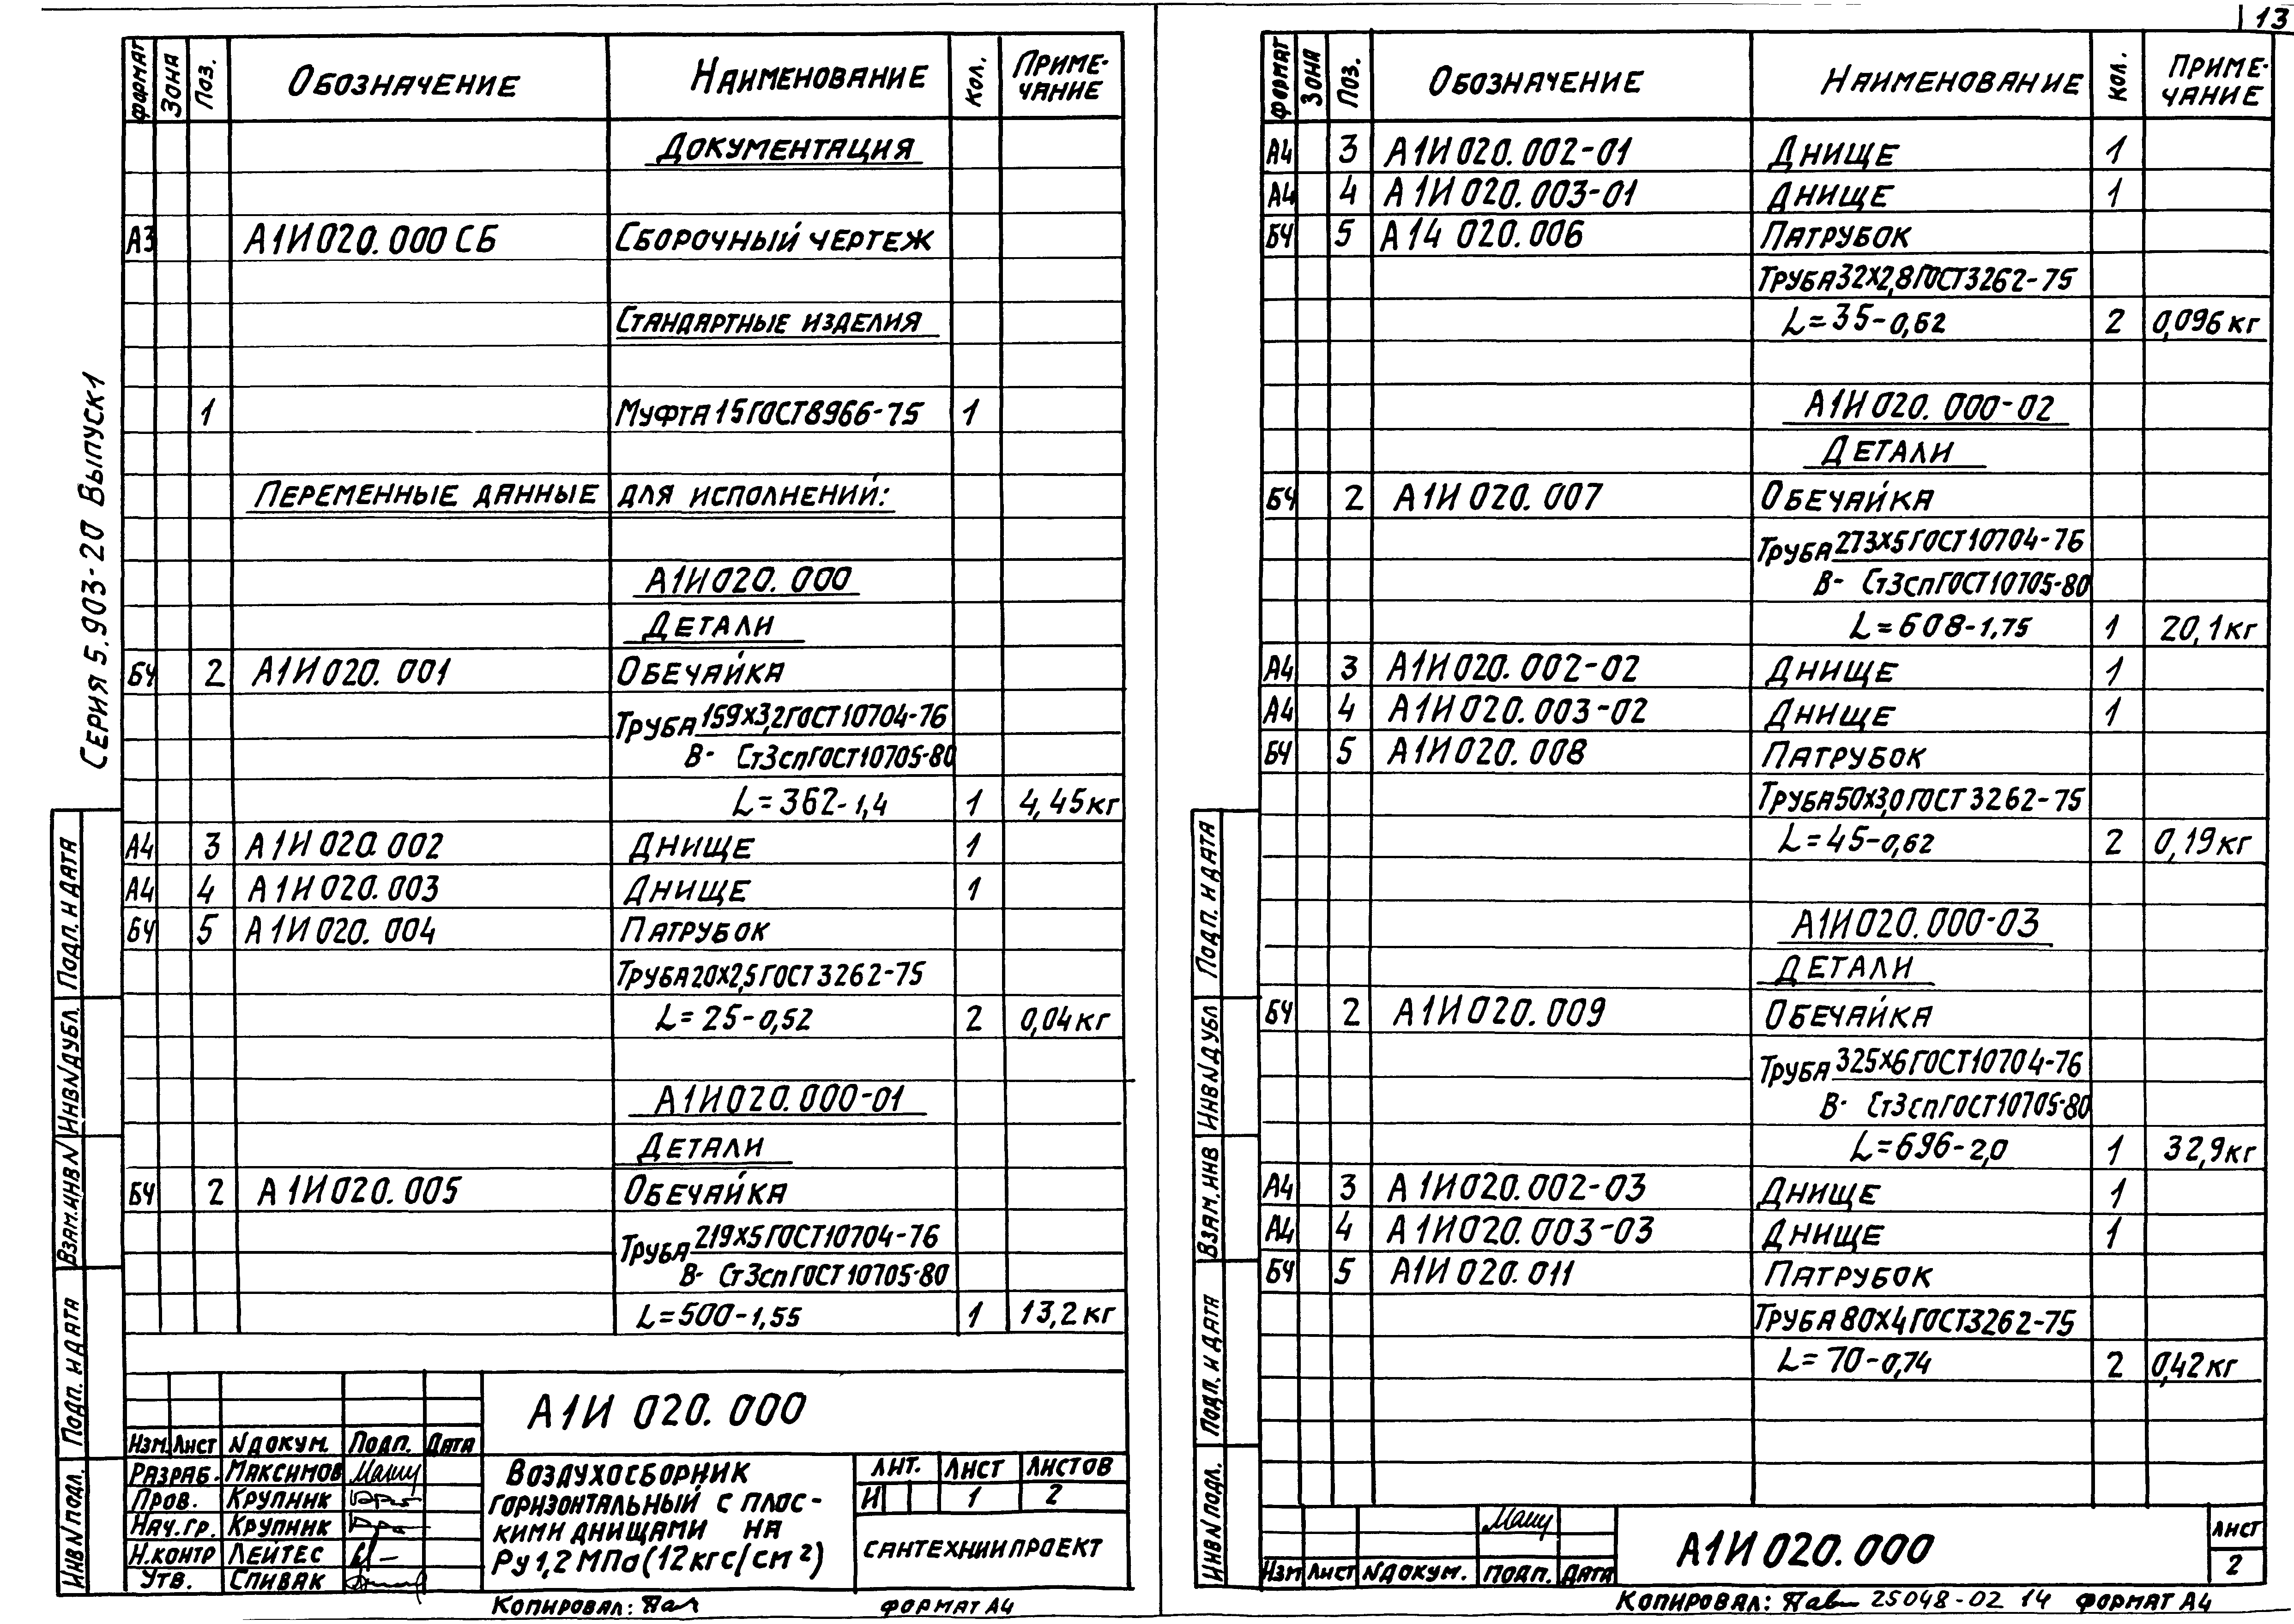 13
Серия 5.903-20 Выпуск 1
Формат Зона Поз. Обозначение Наименование Кол. Примечание
Документация
А3 А1И020.000 СБ Сборочный чертеж
Стандартные изделия
1 Муфта 15 ГОСТ 8966-75 1
Переменные данные для исполнений:
А1И020.000
Детали
БЧ 2 А1И020.001 Обечайка
Труба 159х3,2 ГОСТ 10704-76
В- Ст3сп ГОСТ 10705-80
L=362-1,4 1 4,45 кг
А4 3 А1И020.002 Днище 1
А4 4 А1И020.003 Днище 1
БЧ 5 А1И020.004 Патрубок
Труба 20х2,5 ГОСТ 3262-75
L=25-0,52 2 0,04 кг
А1И020.000-01
Детали
БЧ 2 А1И020.005 Обечайка
Труба 219х5 ГОСТ 10704-76
В- Ст3сп ГОСТ 10705-80
L=500-1,55 1 13,2 кг
Подп. и дата
Инв N дубл.
Взам. инв N
Подп. и дата
Инв N подл.
А1И 020.000
Изм. Лист N докум. Подп. Дата
Разраб. Максимов
Пров. Крупник
Нач.гр. Крупник
Н.контр Лейтес
Утв. Спивак
Воздухосборник
горизонтальный с плос-
кими днищами на
Ру 1,2 МПа (12 кгс/см²)
Лит. Лист Листов
И 1 2
Сантехниипроект
Копировал:
Формат А4
Формат Зона Поз. Обозначение Наименование Кол. Примечание
А4 3 А1И020.002-01 Днище 1
А4 4 А1И020.003-01 Днище 1
БЧ 5 А14 020.006 Патрубок
Труба 32х2,8 ГОСТ 3262-75
L=35-0,62 2 0,096 кг
А1И020.000-02
Детали
БЧ 2 А1И020.007 Обечайка
Труба 273х5 ГОСТ 10704-76
В- Ст3сп ГОСТ 10705-80
L=608-1,75 1 20,1 кг
А4 3 А1И020.002-02 Днище 1
А4 4 А1И020.003-02 Днище 1
БЧ 5 А1И020.008 Патрубок
Труба 50х3,0 ГОСТ 3262-75
L=45-0,62 2 0,19 кг
А1И020.000-03
Детали
БЧ 2 А1И020.009 Обечайка
Труба 325х6 ГОСТ 10704-76
В- Ст3сп ГОСТ 10705-80
L=696-2,0 1 32,9 кг
А4 3 А1И020.002-03 Днище 1
А4 4 А1И020.003-03 Днище 1
БЧ 5 А1И020.011 Патрубок
Труба 80х4 ГОСТ 3262-75
L=70-0,74 2 0,42 кг
Подп. и дата
Инв N дубл
Взам. инв
Подп. и дата
Инв N подл.
Изм Лист N докум. Подп. Дата
А1И020.000
Лист
2
Копировал: 25048-02 14 Формат А4